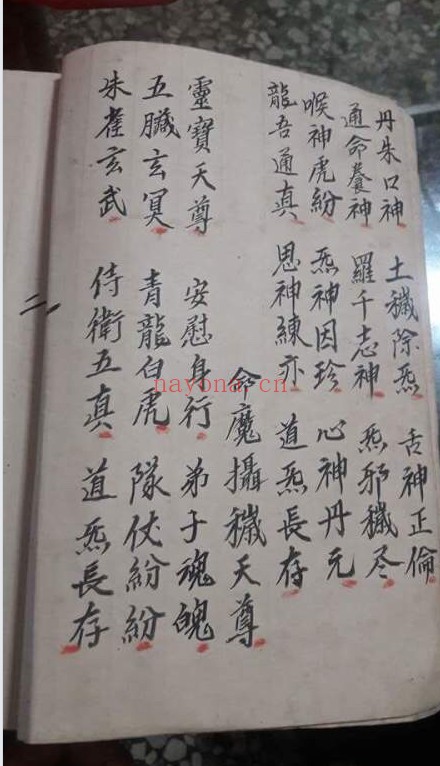 丹朱口神 土穢除炁 舌神正倫
通命養神 羅千志神 炁邪穢尽
喉神虎紛 炁神因珍 心神丹元
龍吾通真 思神練亦 道炁長存
命魔攝穢天尊
靈寶天尊 安慰身行 弟子魂魄
五臟玄冥 青龍白虎 隊仗紛紛
朱雀玄武 侍衛五真 道炁長存
二
nayona.cn